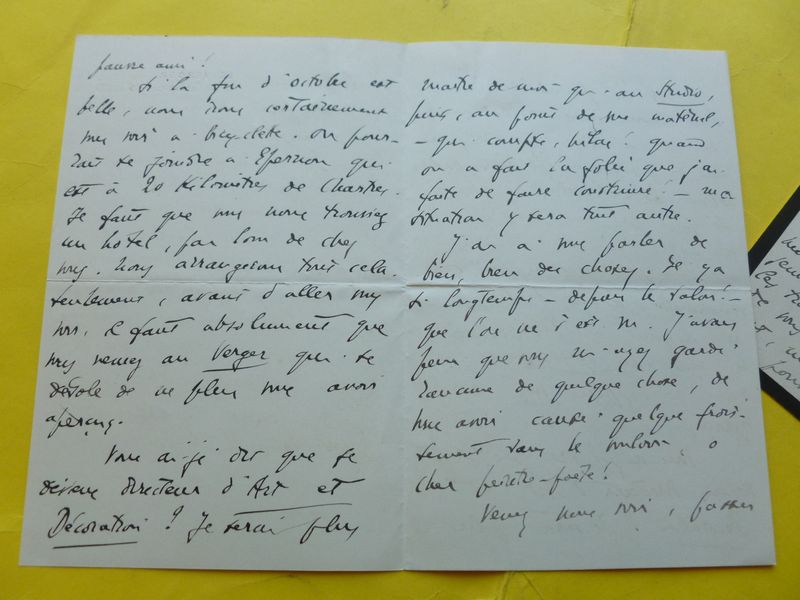 pauvre ami !
Si la fin d'octobre est
belle, nous irons certainement
vous voir à bicyclette. On pour-
rait se joindre à Epernon qui
est à 20 Kilomètres de Chartres.
Je sais que vous nous trouvez
un hotel, pas loin de chez
vous. Nous arrangerons tout cela.
Seulement, avant d'aller vous
voir, il faut absolument que
vous veniez au Verger qui se
désole de ne plus vous avoir
aperçu.
Vous ai-je dit que je
deviens directeur d'Art et
Décoration ? Je serai plus
maître de moi qu'au Studio,
puis, au point de vue matériel,
- qui compte, hélas ! quand
on a fait la folie que j'ai
faite de faire construire ! - ma
situation y sera tout autre.
J'ai à vous parler de
bien, bien des choses. Il y a
si longtemps - depuis le Salon ! -
que l'on ne s'est vu. J'avais
peur que vous m'ayez gardé
rancune de quelque chose, de
vous avoir causé quelque frois-
sement sans le vouloir, o
cher peintre-poète !
Venez nous voir, passer